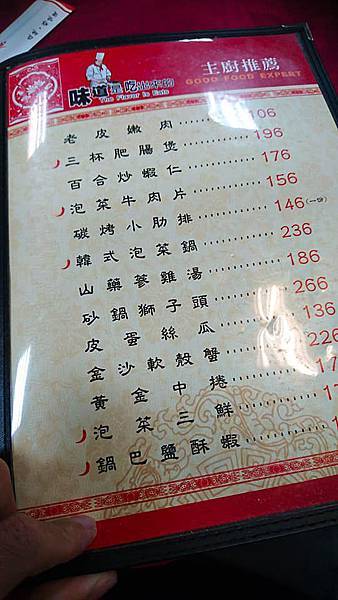 味道是吃出來的
The Flavor is Eats
主廚推薦
GOOD FOOD EXPERT
老皮嫩肉 106
三杯肥腸煲 196
百合炒蝦仁 176
泡菜牛肉片 156
碳烤小肋排 146
韓式泡菜鍋 236
山藥蔘雞湯 186
砂鍋獅子頭 266
皮蛋絲瓜 136
金沙軟殼蟹 226
黃金中捲
泡菜三鮮
鍋巴鹽酥蝦